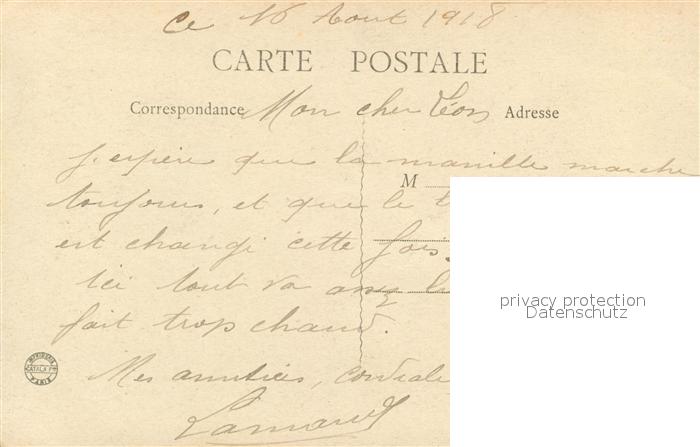 Ce 16 Aout 1918
CARTE POSTALE
Correspondance Mon cher Léon Adresse
J'espère que la manille marche
M
toujours, et que le
est changé cette fois,
Ici tout va assez
fait trop chaud.
Mes amitiés,
privacy protection
Datenschutz